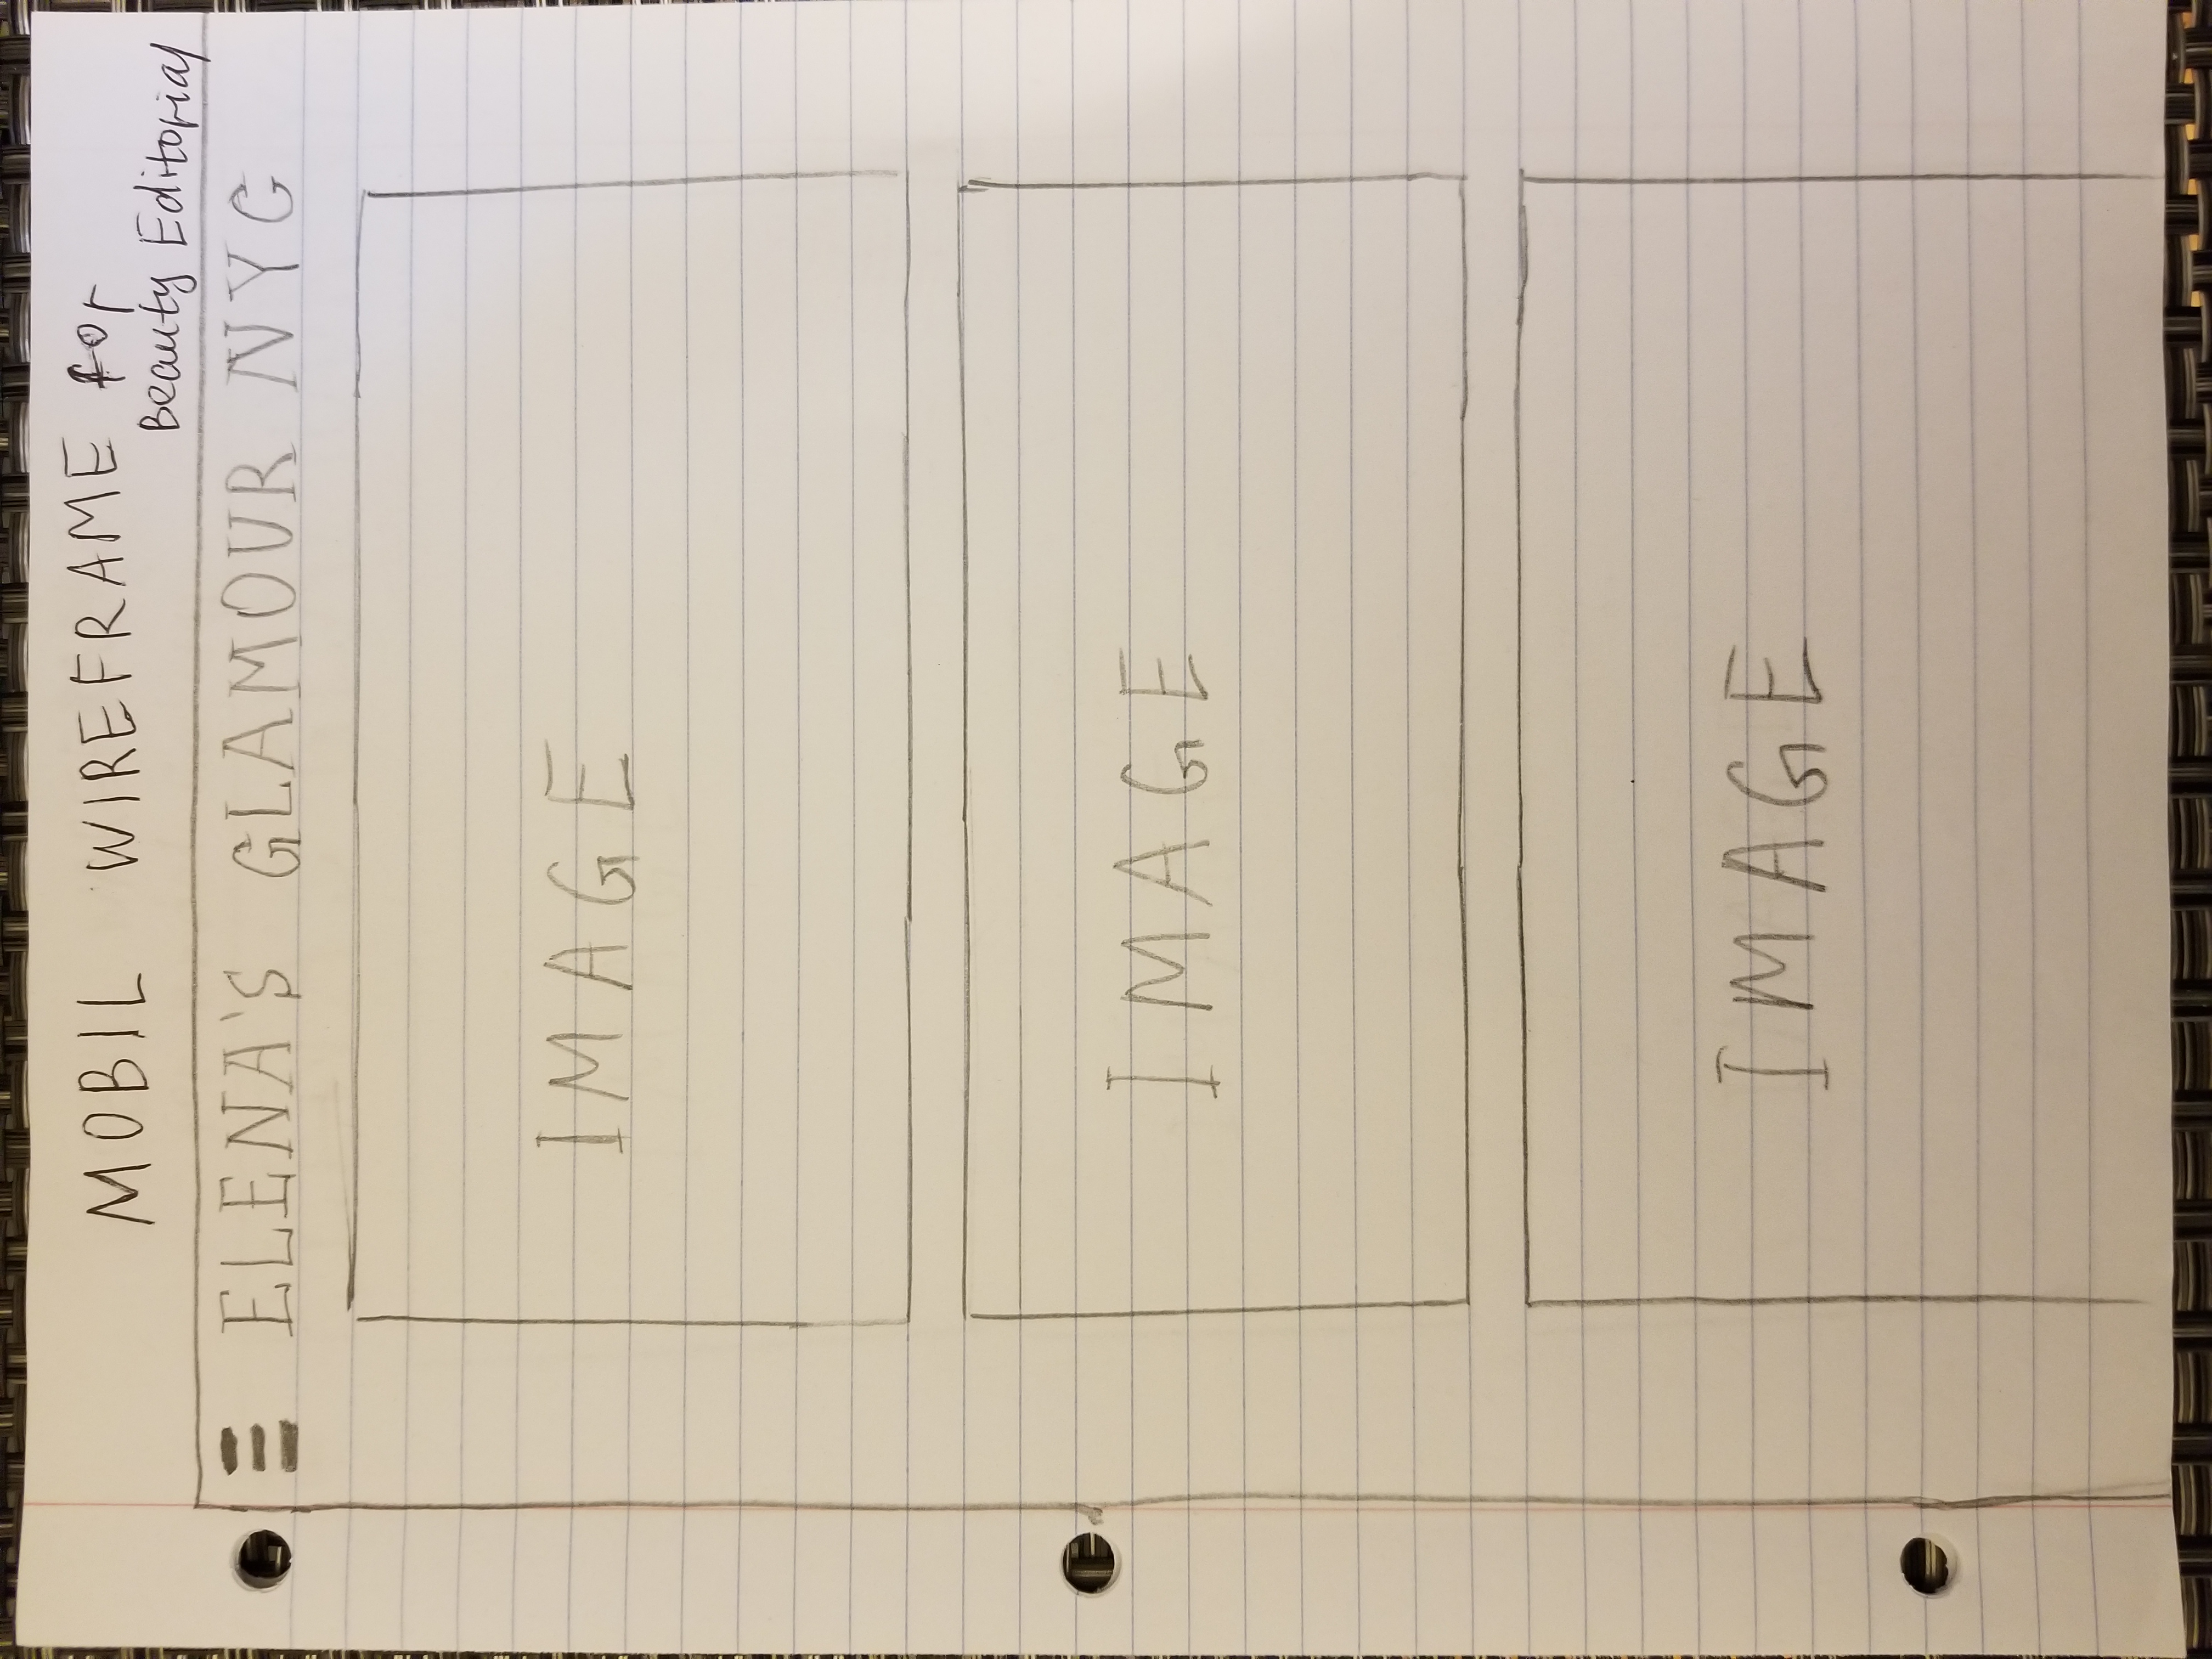 MOBIL WIREFRAME for
Beauty Editorial
ELENA'S GLAMOUR NYC
IMAGE
IMAGE
IMAGE